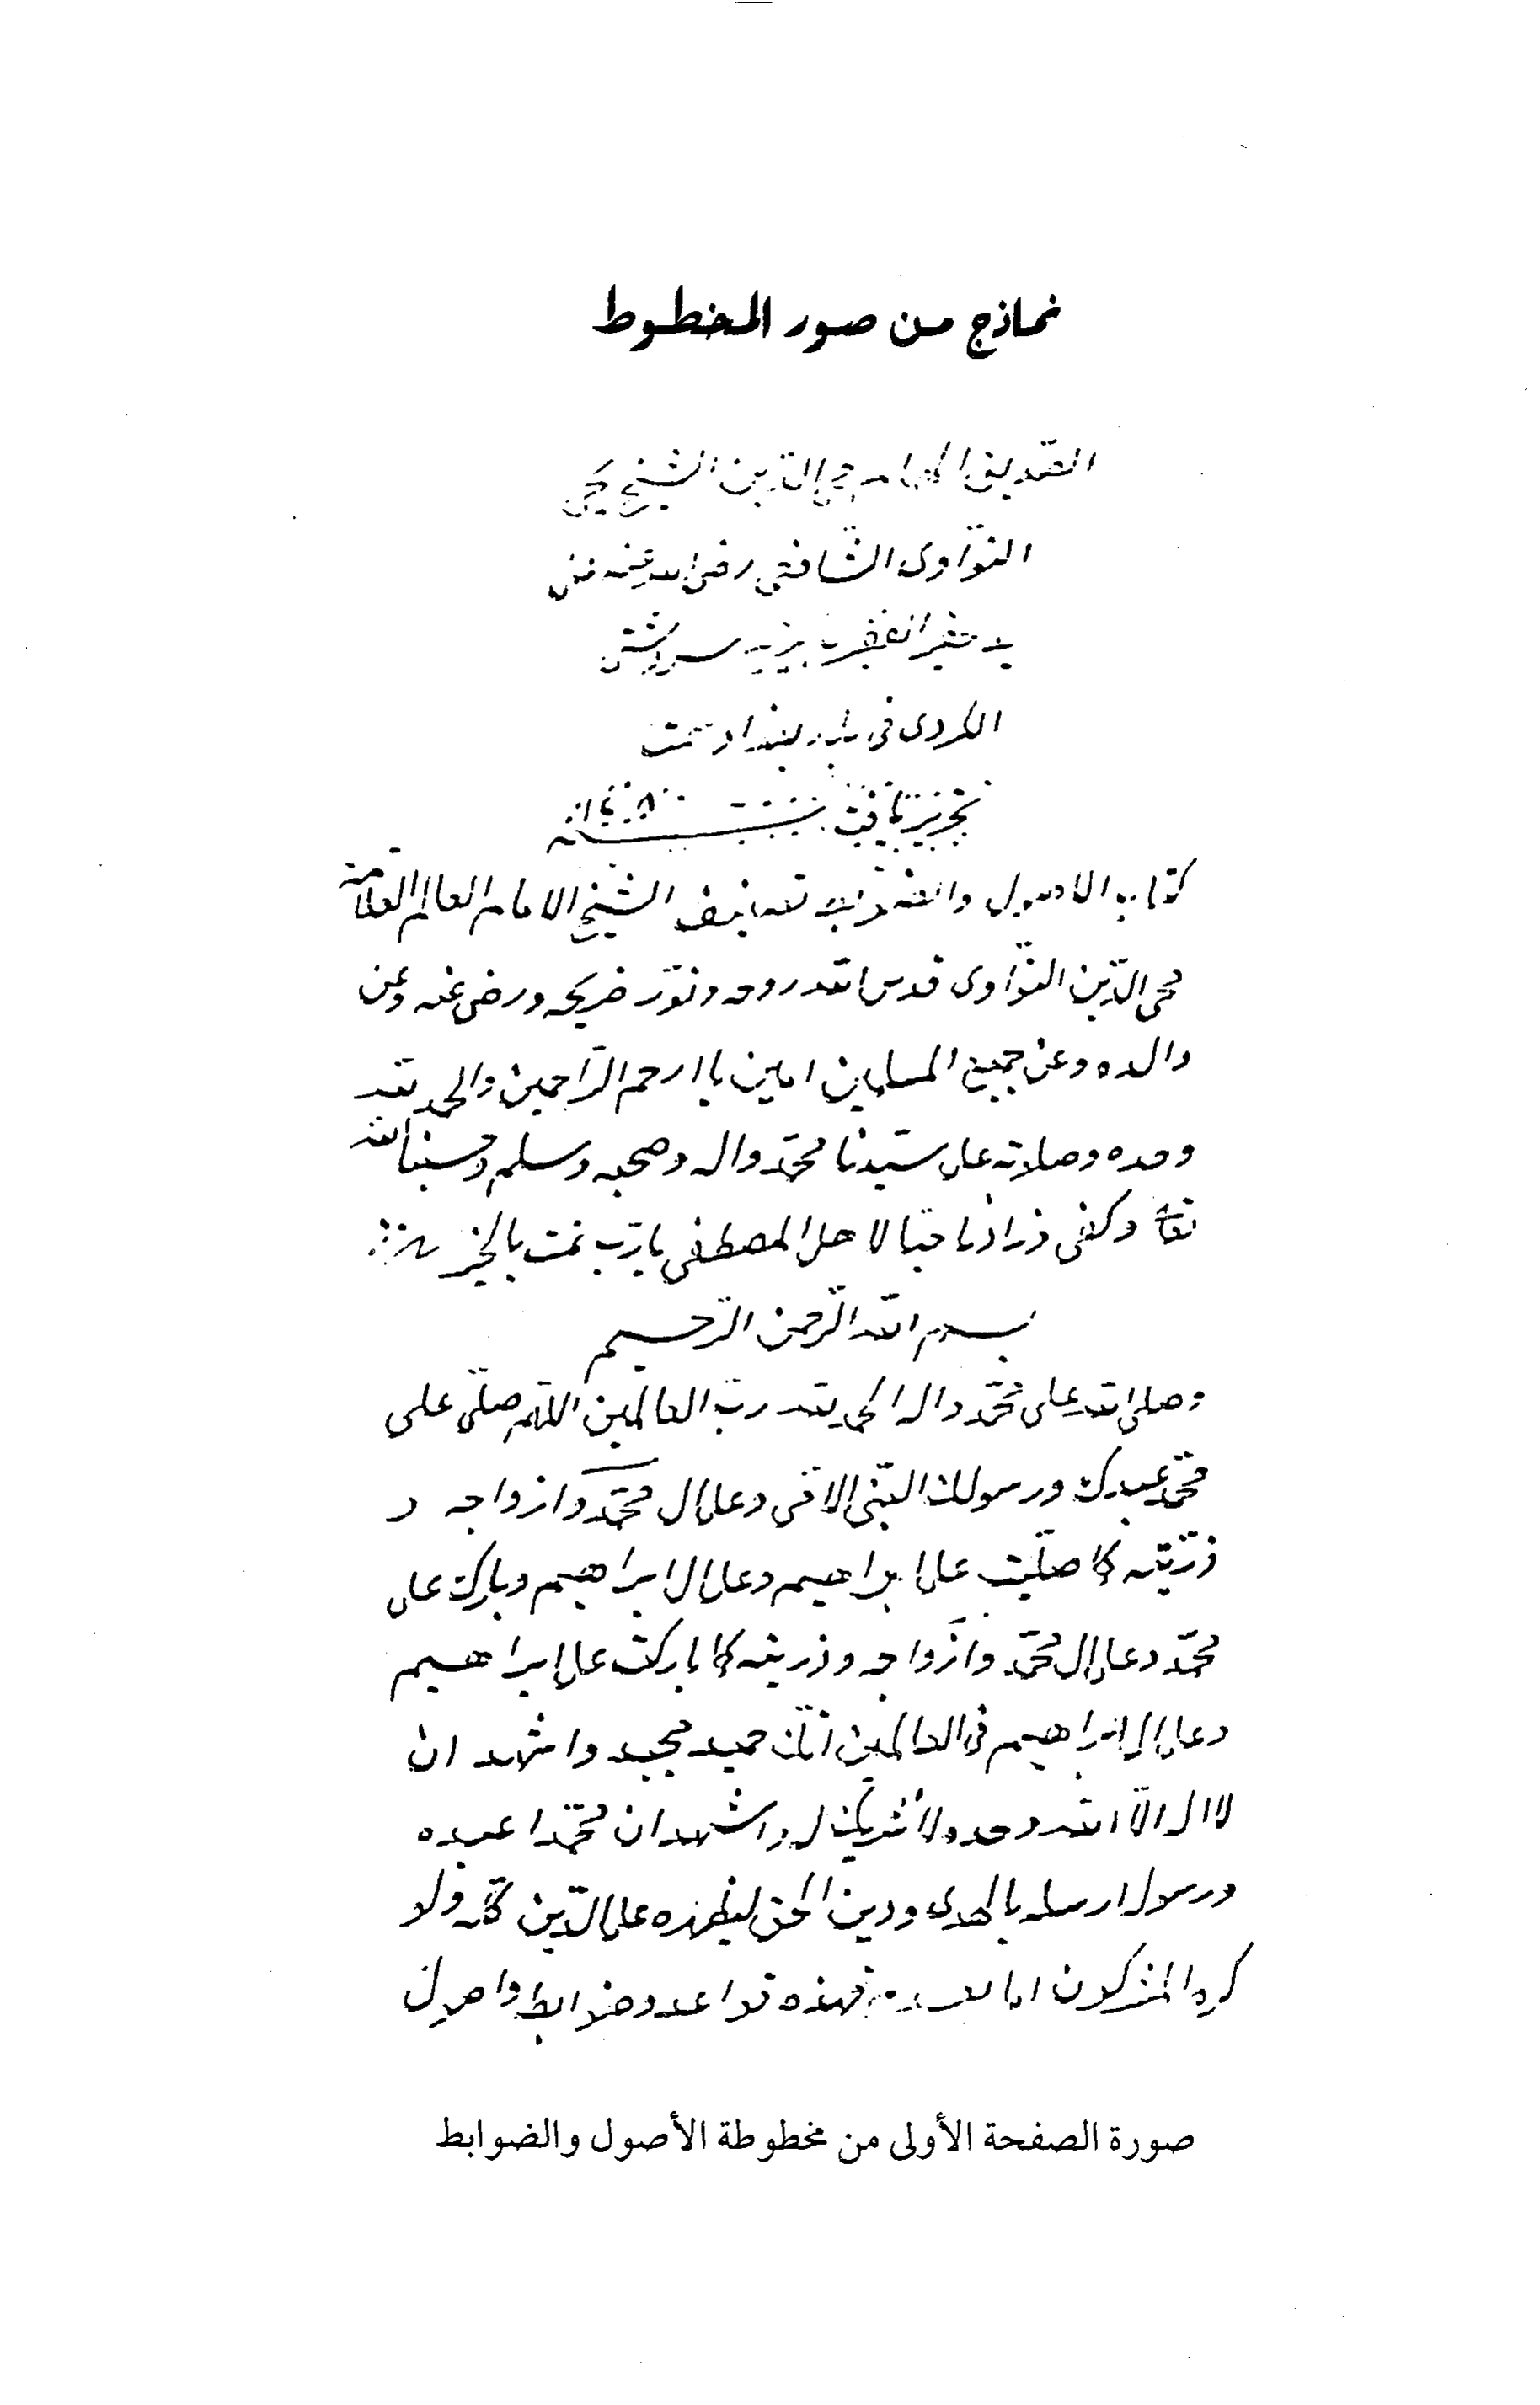 نماذج من صور المخطوط
الدين الشيخ يحيى
النواوى الشافعى رضى الله عنه
الفقير
الكردى فى بغداد تمت
كتاب الاصول والضوابط تصنيف الشيخ الامام العالم العلامة
محى الدين النواوى قدس الله روحه ونور ضريحه ورضى عنه وعن
والده وعن جميع المسلمين امين يا ارحم الراحمين والحمد لله
وحده وصلاته على سيدنا محمد واله وصحبه وسلم وحسبنا الله
وكفى بالخير
بسم الله الرحمن الرحيم
وصلى الله على محمد واله الحمد لله رب العالمين اللهم صلى على
محمد عبدك ورسولك النبى الامى وعلى ال محمد وازواجه و
ذريته كما صليت على ابراهيم وعلى ال ابراهيم وبارك على
محمد وعلى ال محمد وازواجه وذريته كما باركت على ابراهيم
وعلى ال ابراهيم فى العالمين انك حميد مجيد واشهد ان
لا اله الا الله وحده لا شريك له واشهد ان محمدا عبده
ورسوله ارسله بالهدى ودين الحق ليظهره على الدين كله ولو
كره المشركون اما بعد فهذه قواعد وضوابط واصول
صورة الصفحة الأولى من مخطوطة الأصول والضوابط